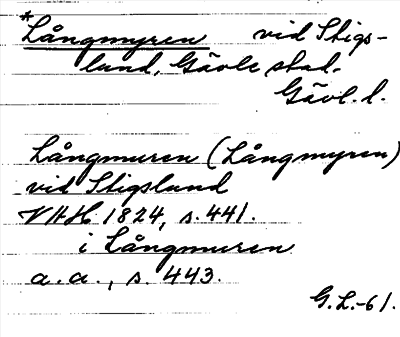 *Långmyren vid Stigs-
lund, Gävle stad.
Gävl. l.
Långmuren (Långmyren)
vid Stigslund
VHH 1824, s. 441.
i Långmuren
a.a., s. 443.
G.L.-61.